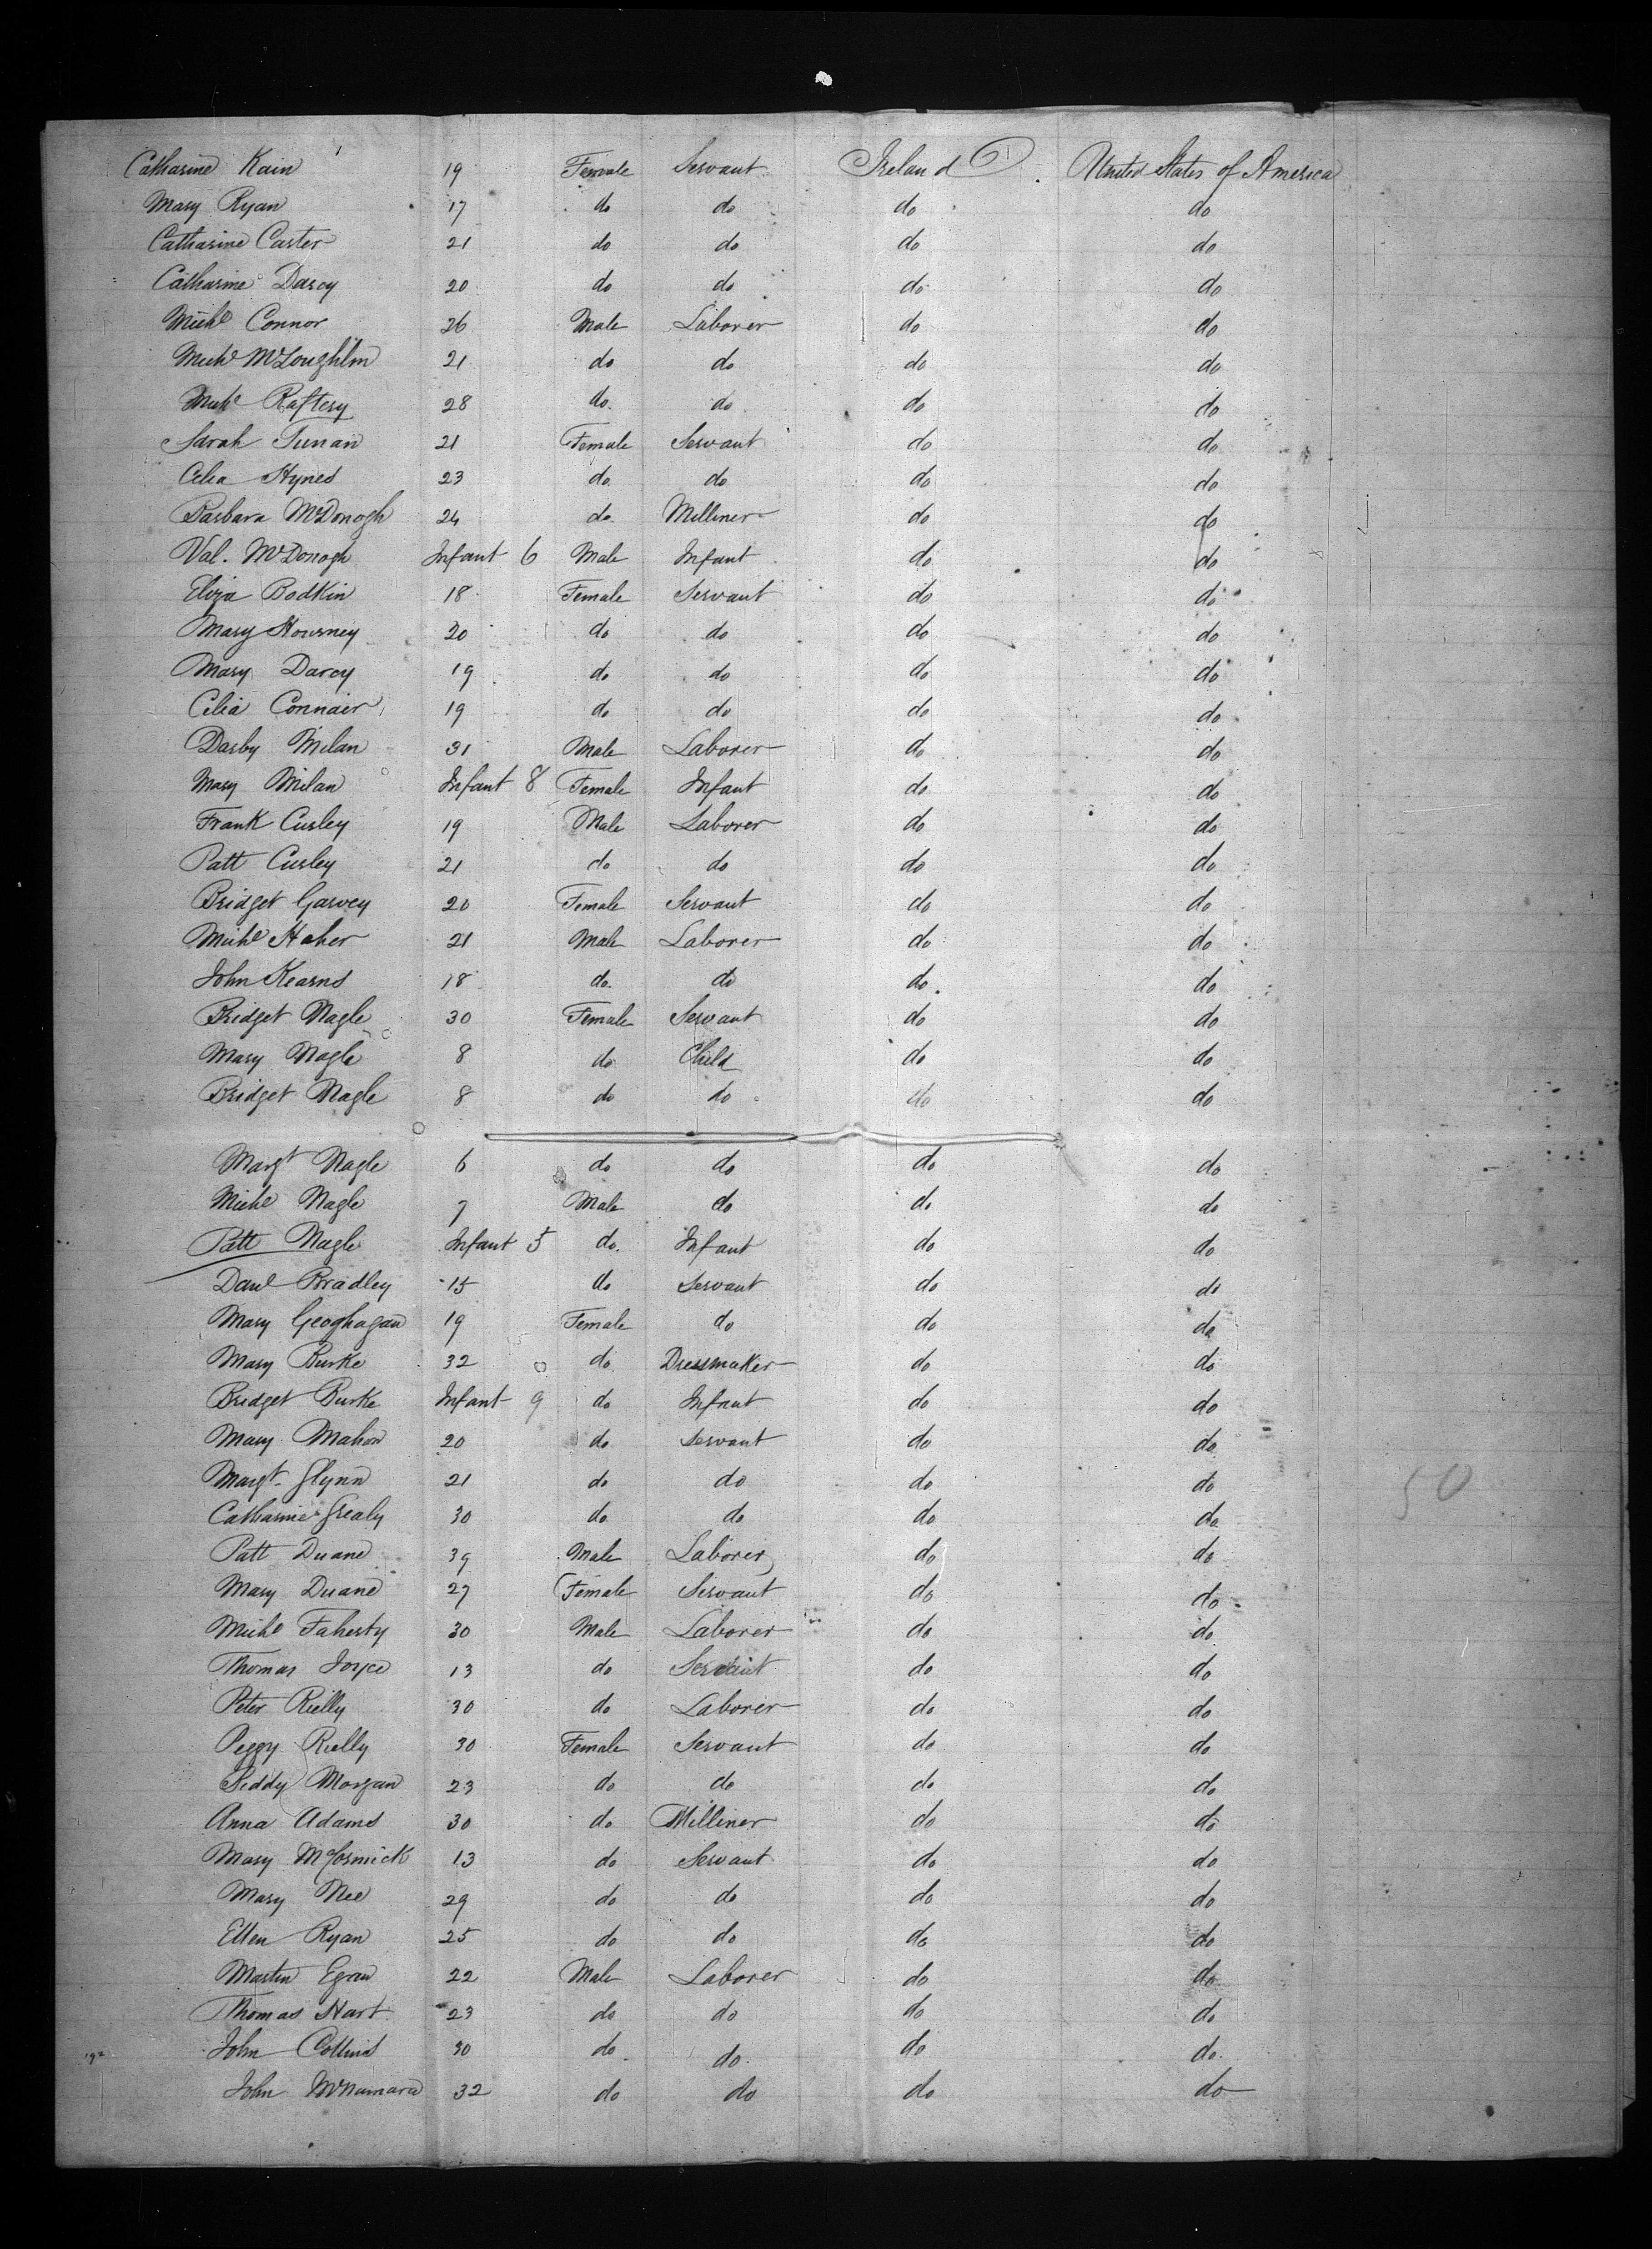 Catharine Kain 19 Female Servant Ireland United States of America
Mary Ryan 17 do do do do
Catharine Carter 21 do do do do
Catharine Darcy 20 do do do do
Michl Connor 26 Male Laborer do do
Michl McLoughlin 21 do do do do
Michl Raftery 28 do. do do do
Sarah 21 Female Servant do do
Celia Hynes 23 do. do do do
Barbara McDonogh 24 do. Milliner do do
Val. McDonogh Infant 6 Male Infant do do
Eliza Bodkin 18 Female Servant do do
Mary 20 do do do do
Mary Darcy 19 do do do do
Celia Connair 19 do do do do
Darby Milan 31 Male Laborer do do
Mary Milan Infant 8 Female Infant do do
Frank Curley 19 Male Laborer do do
Patt Curley 21 do do do do
Bridget Garvey 20 Female Servant do do
Michl Haher 21 Male Laborer do do
John Kearns 18 do. do do. do
Bridget Nagle 30 Female Servant do do
Mary Nagle 8 do Child do do
Bridget Nagle 8 do do do do
Margt Nagle 6 do do do do
Michl Nagle 7 Male do do do
Patt Nagle Infant 5 do. Infant do do
Danl Bradley 15 do Servant do do
Mary Geoghagan 19 Female do do do
Mary Burke 32 do Dressmaker do do
Bridget Burke Infant 9 do Infant do do
Mary Mahon 20 do Servant do do
Margt. Glynn 21 do do do do
50
Catharine Grealy 30 do do do do
Patt Duane 39 Male Laborer do do
Mary Duane 27 Female Servant do do
Michl Faherty 30 Male Laborer do do
Thomas Joyce 13 do Servant do do
Peter Rielly 30 do Laborer do do
Peggy Rielly 30 Female Servant do do
Morgan 23 do do do do
Anna Adams 30 do Milliner do do
Mary McCormick 13 do Servant do do
Mary Nee 29 do do do do
Ellen Ryan 25 do do do do
Martin Egan 22 Male Laborer do do
Thomas Hart 23 do do do do
John Collins 30 do do. do do.
John McNamara 32 do do do do